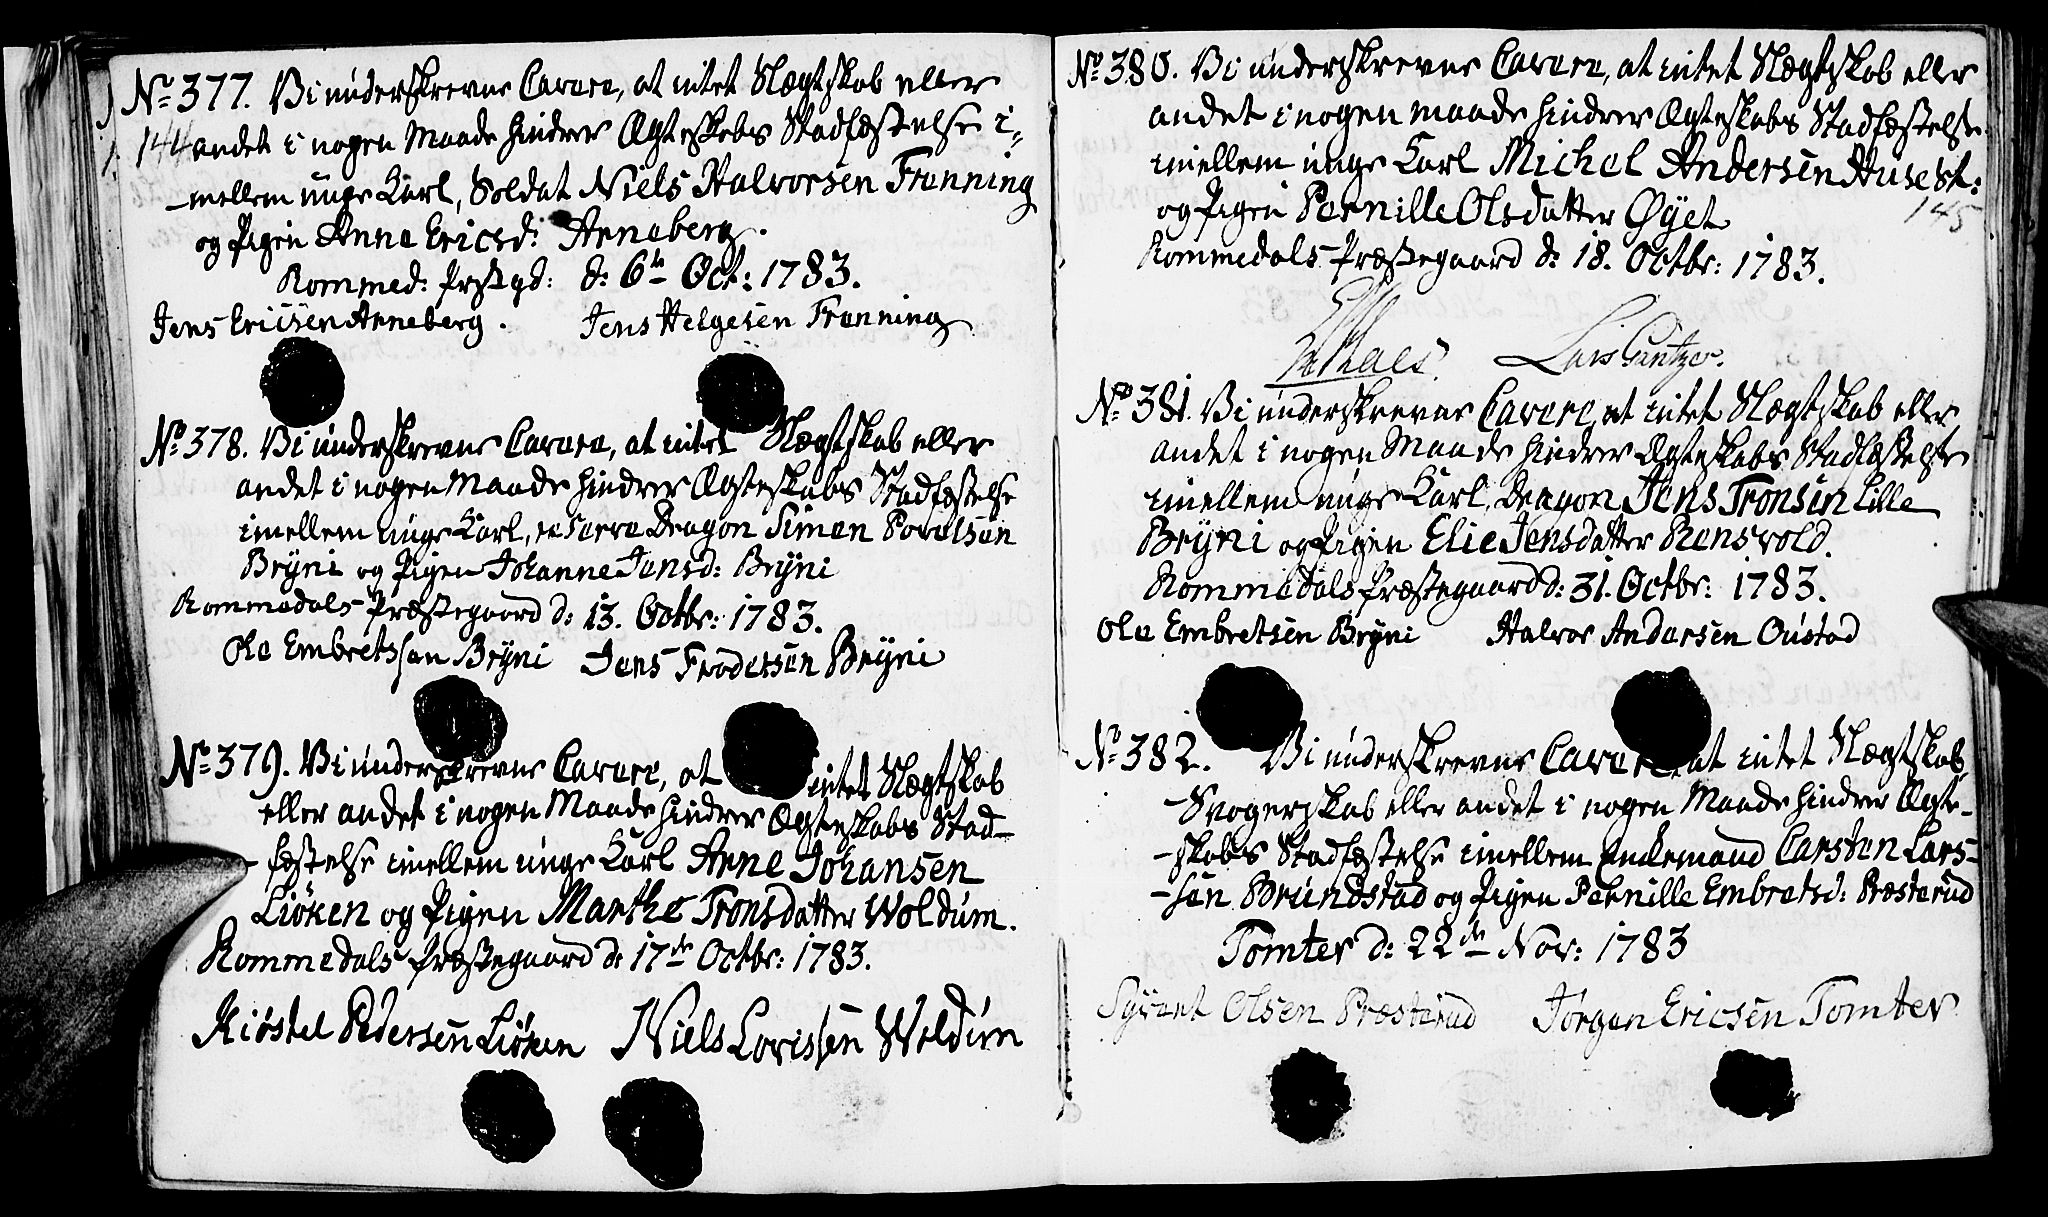 No 377. Vi underskrevne Cavere, at intet Slægtskab eller
144 andet i nogen Maade hindrer Ægteskabs Stadfæstelse i-
-mellem unge Karl, Soldat Niels Halvorsen Frenning
og Pigen Anne Ericsd: Arneberg.
Rommed: Præstgd: d: 6te Oct: 1783.
Jens Ericsen Arneberg. Jens Helgesen Frenning
No 378. Vi underskrevne Cavere, at intet Slægtskab eller
andet i nogen Maade hindrer Ægteskabs Stadfæstelse
imellem unge Karl, reserve Dragon Simen Povelsen
Bryni og Pigen Johanne Jensd: Bryni
Rommedals Præstegaard d: 13. Octbr: 1783.
Ole Embretssen Bryni Jens Frodersen Bryni
No 379. Vi underskrevne Cavere, at intet Slægtskab
eller andet i nogen Maade hindrer Ægteskabs Stad-
-fæstelse imellem unge Karl Arne Johansen
Liøken og Pigen Marthe Tronsdatter Woldum.
Rommedals Præstegaard d: 17de Octbr: 1783.
Kiøstel Pedersen Liøken Niels Lovissen Woldum
No 380. Vi underskrevne Cavere, at intet Slægtskab eller
andet i nogen maade hindrer Ægteskabs Stadfæstelse
imellem unge Karl Michel Andersen Husest:
og Pigen Pernille Olsdatter Øyet
145
Rommedals Præstegaard d: 18. Octbr: 1783.
Lars Guntzer.
No 381. Vi underskrevne Cavere, at intet Slægtskab eller
andet i nogen Maade hindrer Ægteskabs Stadfæstelse
imellem unge Karl, Dragon Jens Tronsen Lille
Bryni og Pigen Elie Jensdatter Rensvold.
Rommedals Præstegaard d: 31. Octbr: 1783.
Ole Embretsen Bryni Halvor Andersen Oustad
No 382. Vi underskrevne Cavere, at intet Slægtskab,
-Svogerskab eller andet i nogen Maade hindrer Ægte-
-skabs Stadfæstelse imellem Enckemand Carsten Lars-
-sen Brundstad og Pigen Pernille Embretsd: Præsterud
Tomter d: 22de Nov: 1783
Syvert Olsen Præsterud Jørgen Ericsen Tomter